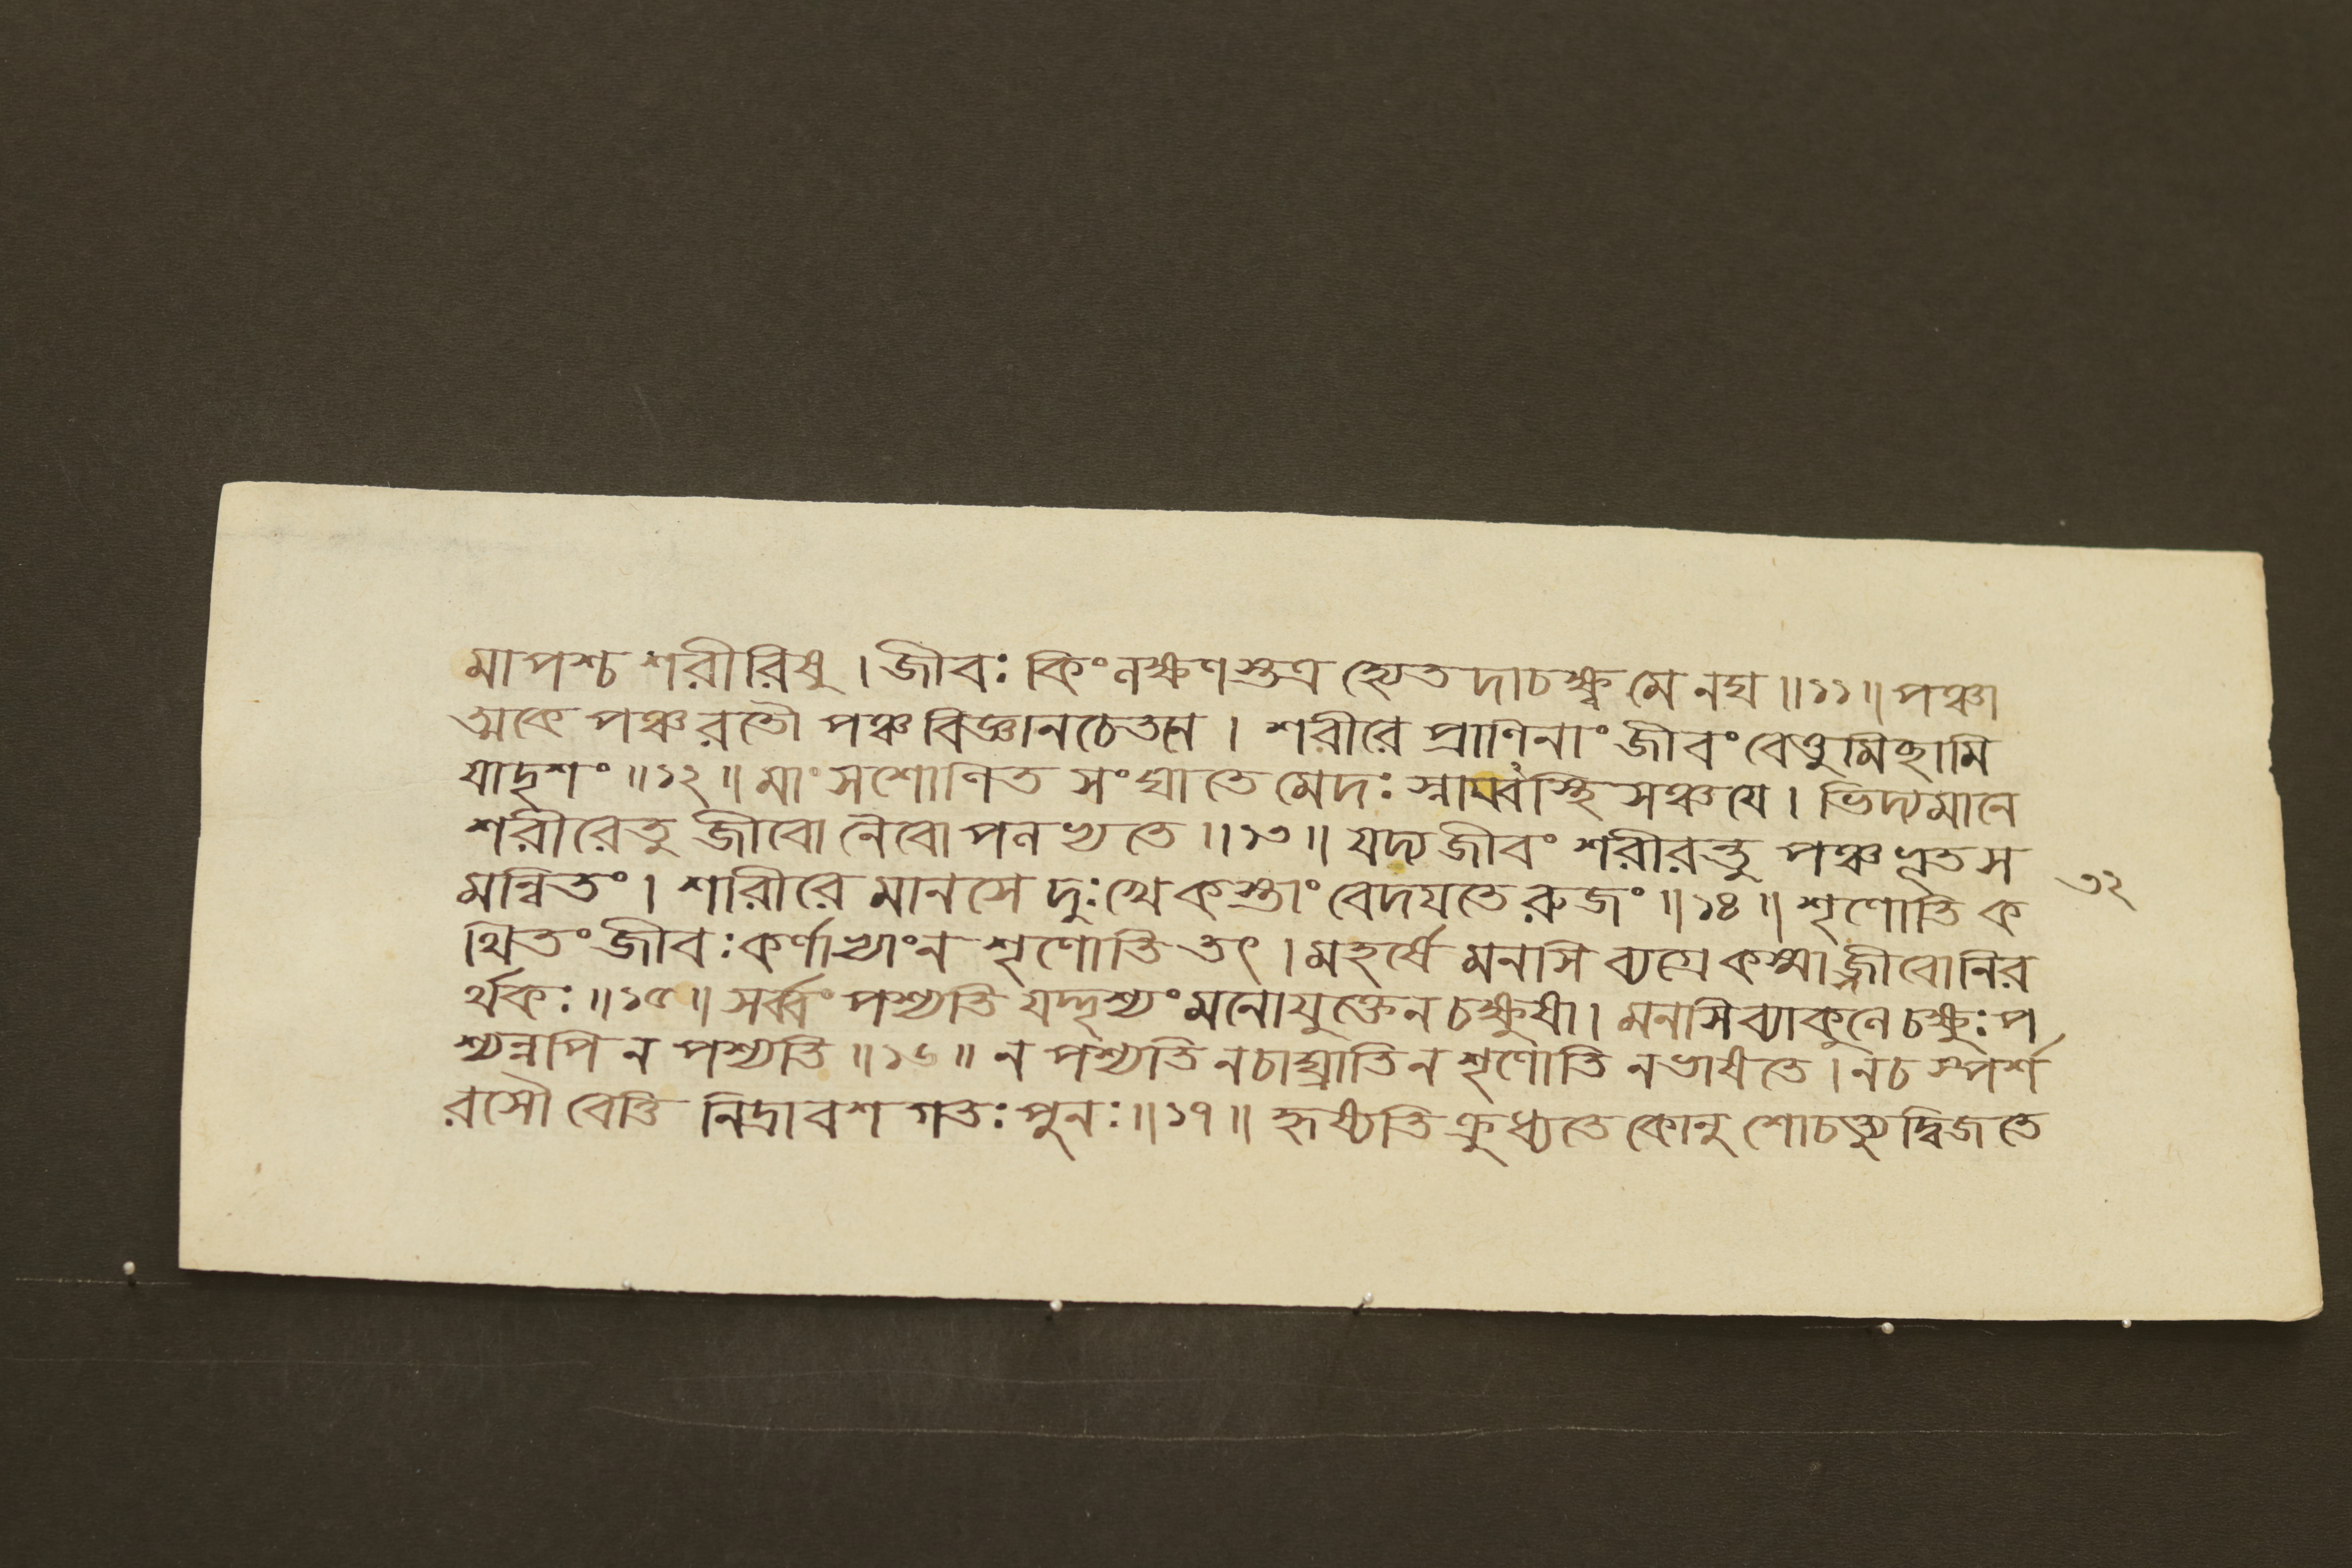 মাপশ্চ শরীরিষু । জীবঃ কিংলক্ষণস্তত্র হ্যেতদাচক্ষ্ব মেনঘ ॥১১॥ পঞ্চা
ত্মকে পঞ্চরতৌ পঞ্চবিজ্ঞানচেতনে । শরীরে প্রাণিনাং জীবং বেত্তুমিচ্ছামি
যাদৃশং ॥১২॥ মাংসশোণিত সংঘাতে মেদঃ স্নায়্বস্থিসঞ্চয়ে । ভিদ্যমানে
শরীরেতু জীবো নৈবোপলভ্যতে ॥১৩॥ যদ্যজীবং শরীরন্তু পঞ্চভূতস
মন্বিতং । শারীরে মানসে দুঃখে কস্তাং বেদযতে রুজং ॥১৪॥ শৃণোতি ক
৩২
থিতং জীবঃ কর্ণাভ্যাংন শৃণোতি তৎ । মহর্ষে মনসি ব্যগ্রে কস্মাজ্জীবোনির
র্থকঃ ॥১৫॥ সর্ব্বং পশ্যতি যদ্দৃশ্যং মনোযুক্তেন চক্ষুষা । মনসিব্যাকুলে চক্ষুঃ প
শ্যন্নপি ন পশ্যতি ॥১৬॥ ন পশ্যতি নচাঘ্রাতি ন শৃণোতি নভাষতে । নচ স্পর্শ
রসৌ বেত্তি নিদ্রাবশ গতঃ পুনঃ ॥১৭॥ হৃষ্যতি ক্রুধ্যতে কোনু শোচত্যুদ্বিজতে